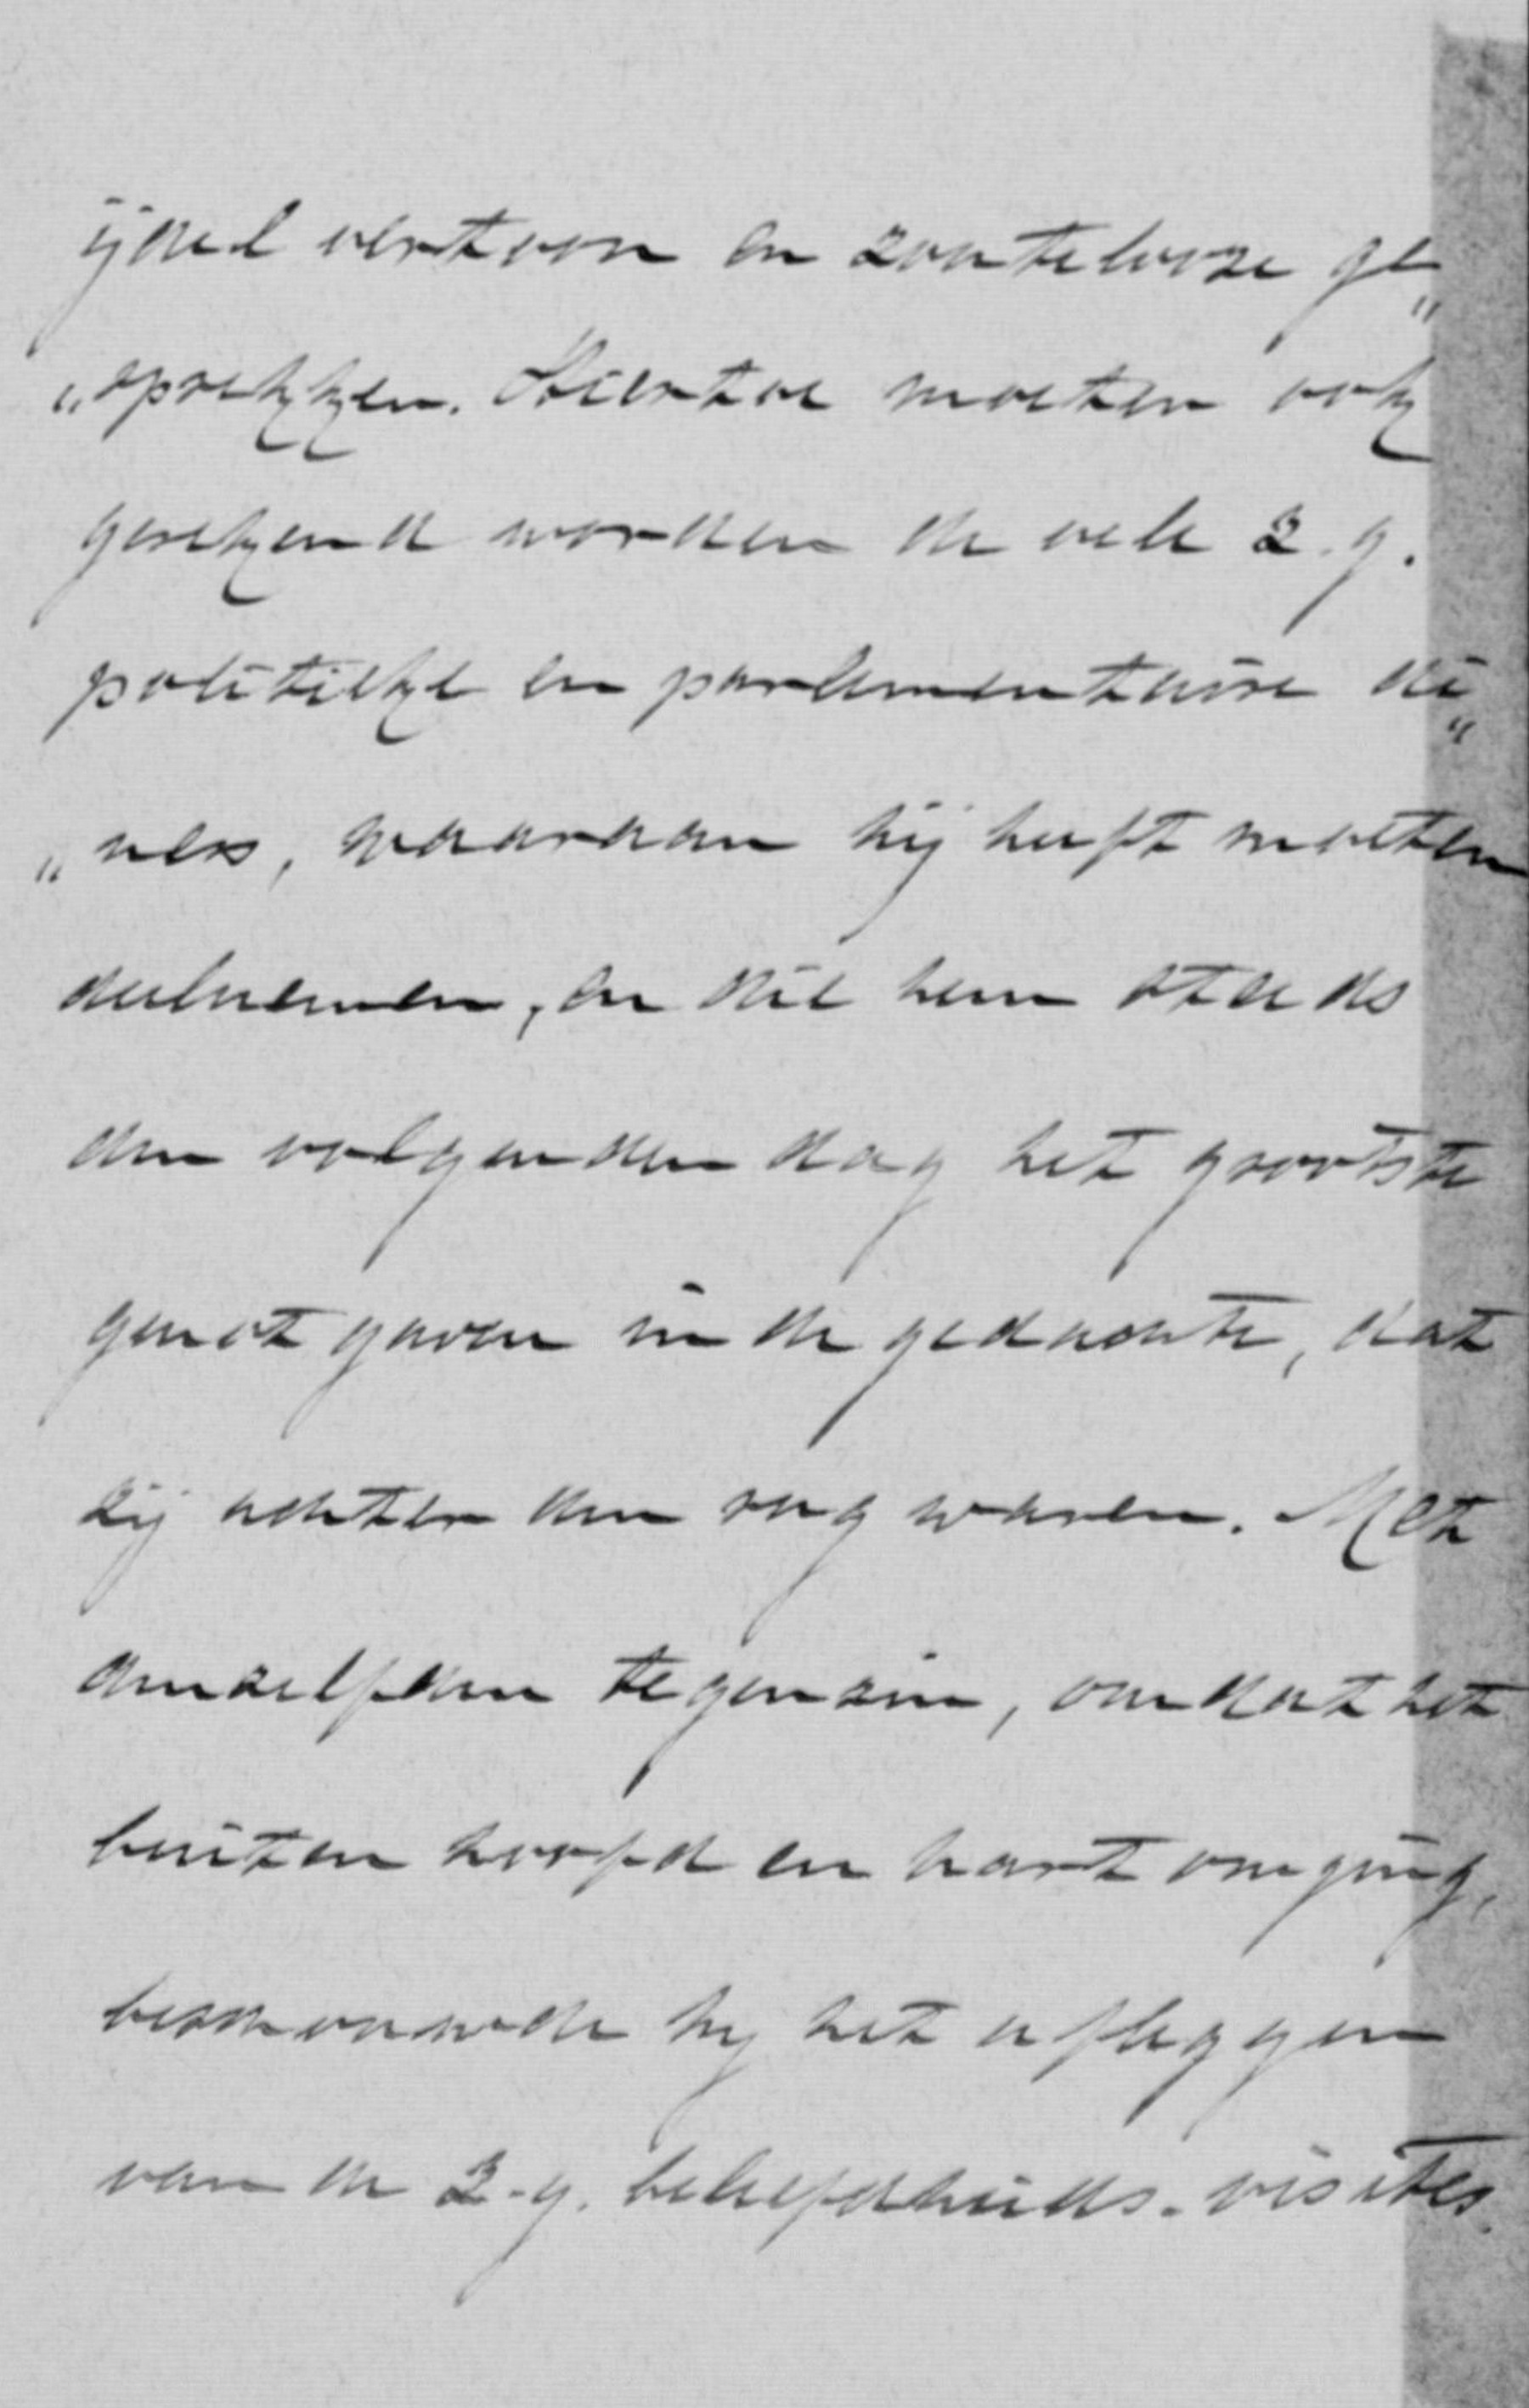 ijdel vertoon en zoutelooze ge„
„sprekken. Hiertoe moeten ook
gerekend worden de vele z.g.
politieke en parlementaire di„
„ners, waaraan hij heeft moeten
deelnemen, en die hem steeds
den volgenden dag het grootste
genot gaven in de gedachte, dat
zij achter den rug waren. Met
denzelfden tegenzin, omdat het
buiten hoofd en hart omging,
beschouwde hij het afleggen
van de z.g. beleefdheids-visites.